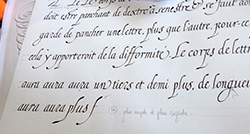 doit estre panchant de dextre à senestre, & se fault
garde de pancher une lettre, plus que l'autre, pour-ce
cela y apporteroit de la difformité. Le corps de lettr
aura aura aura un tiers et demi plus, de longueu
aura aura plus f
plus simple et plus rapide